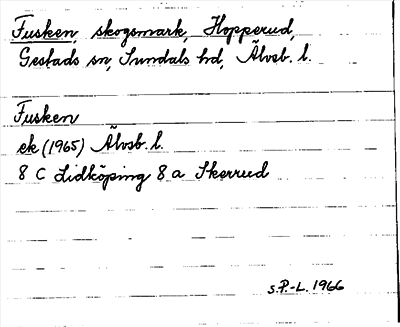 Fusken, skogsmark, Hopperud,
Gestads sn, Sundals hd, Älvsb. l.
Fusken
ek (1965) Älvsb. l.
8 C Lidköping 8 a Skerrud
S.P.-L. 1966